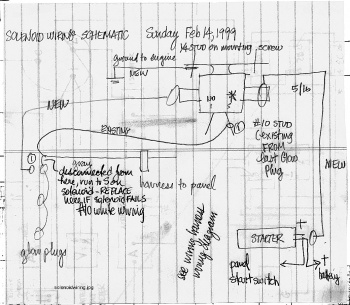 SOLENOID WIRING SCHEMATIC Sunday Feb 14, 1999
1/4 STUD on mounting screw
ground to engine
NEW
5/16
NO
NEW
EXISTING
1
#10 STUD
(existing
FROM
last Glow
Plug
1
gray
disconnected from
here, run to S on
solenoid - REPLACE
here IF solenoid FAILS
#10 white wiring
harness to panel
NEW
see wiring harness
wiring diagram
glow plugs
STARTER
+
panel
start switch
+
battery
solenoidwiring.jpg